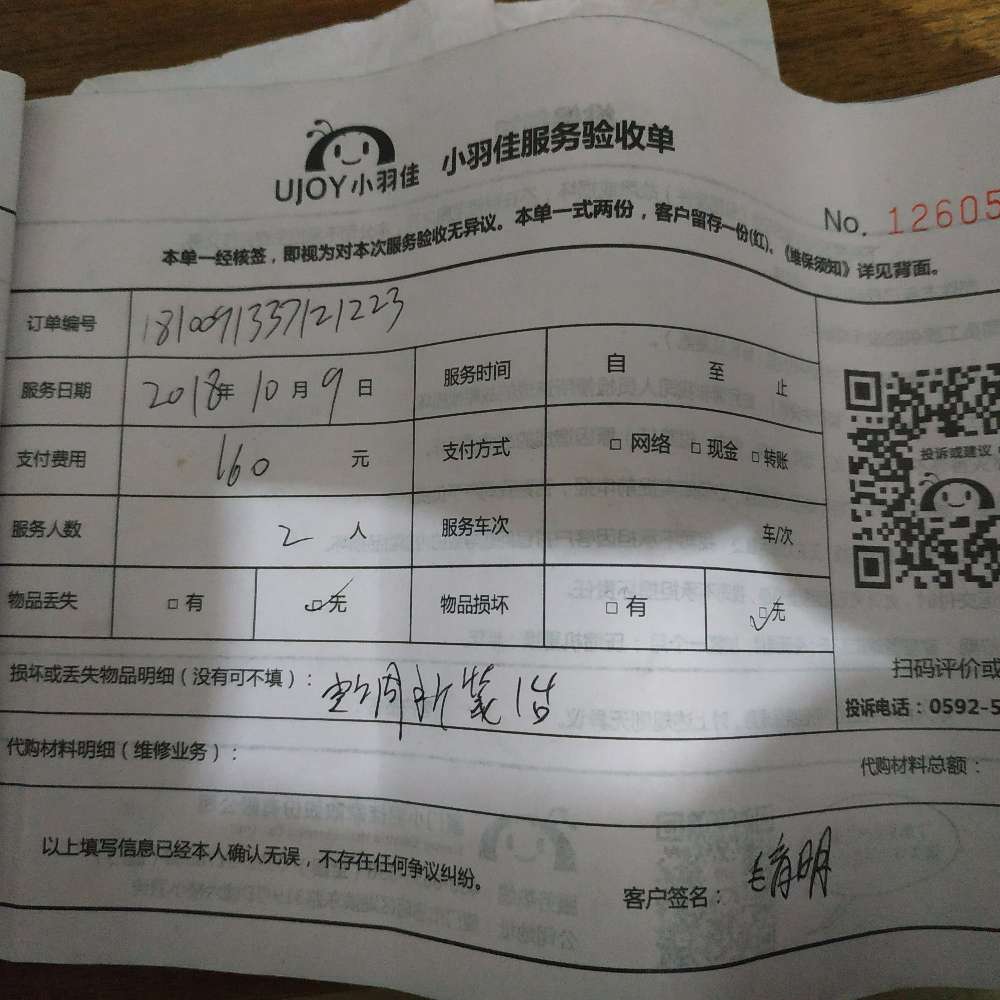 UJOY小羽佳 小羽佳服务验收单
No. 12605
本单一经核签，即视为对本次服务验收无异议。本单一式两份，客户留存一份(红)、《维保须知》详见背面。
订单编号 1810091337121223
服务日期 2018年 10月 9日 服务时间 自 至 止
支付费用 160 元 支付方式 □ 网络 □ 现金 □ 转账
服务人数 2 人 服务车次 车/次
物品丢失 □ 有 □ 无 物品损坏 □ 有 □ 无
投诉或建议
扫码评价或
投诉电话：0592-5
损坏或丢失物品明细（没有可不填）：
代购材料明细（维修业务）：
代购材料总额：
以上填写信息已经本人确认无误，不存在任何争议纠纷。
客户签名：